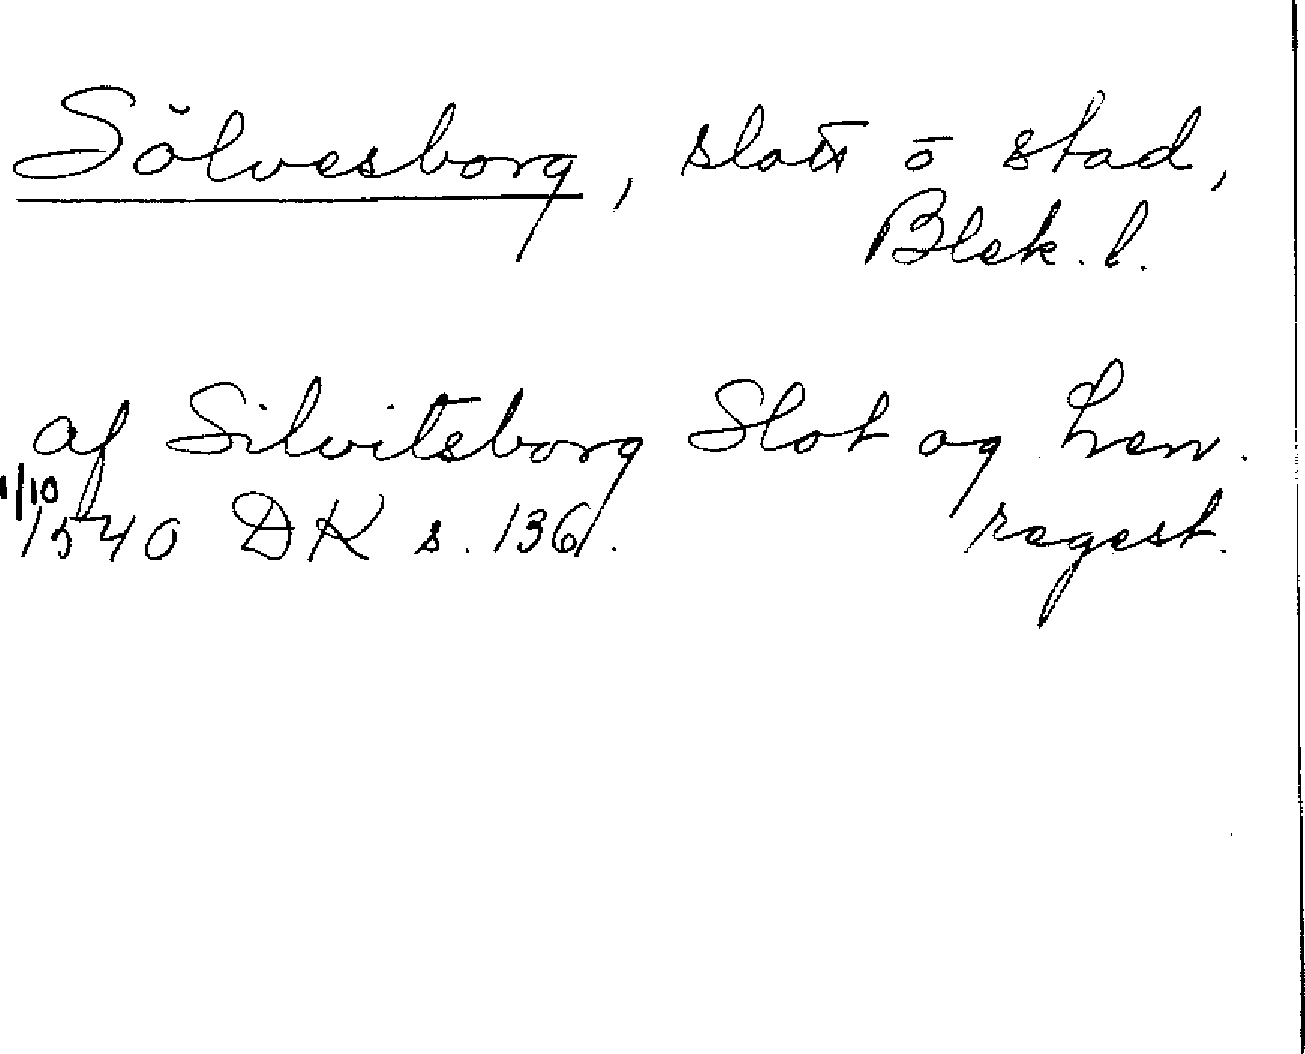 Sölvesborg, slott o stad,
Blek. l.
af Silvitsborg Slot og Len.
1/10 1540 DK s. 136. regest.